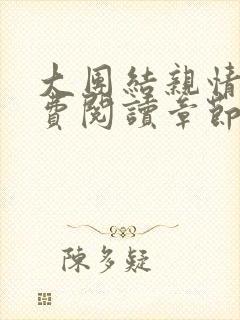 大团結親情
費閱讀章節
陳多疑